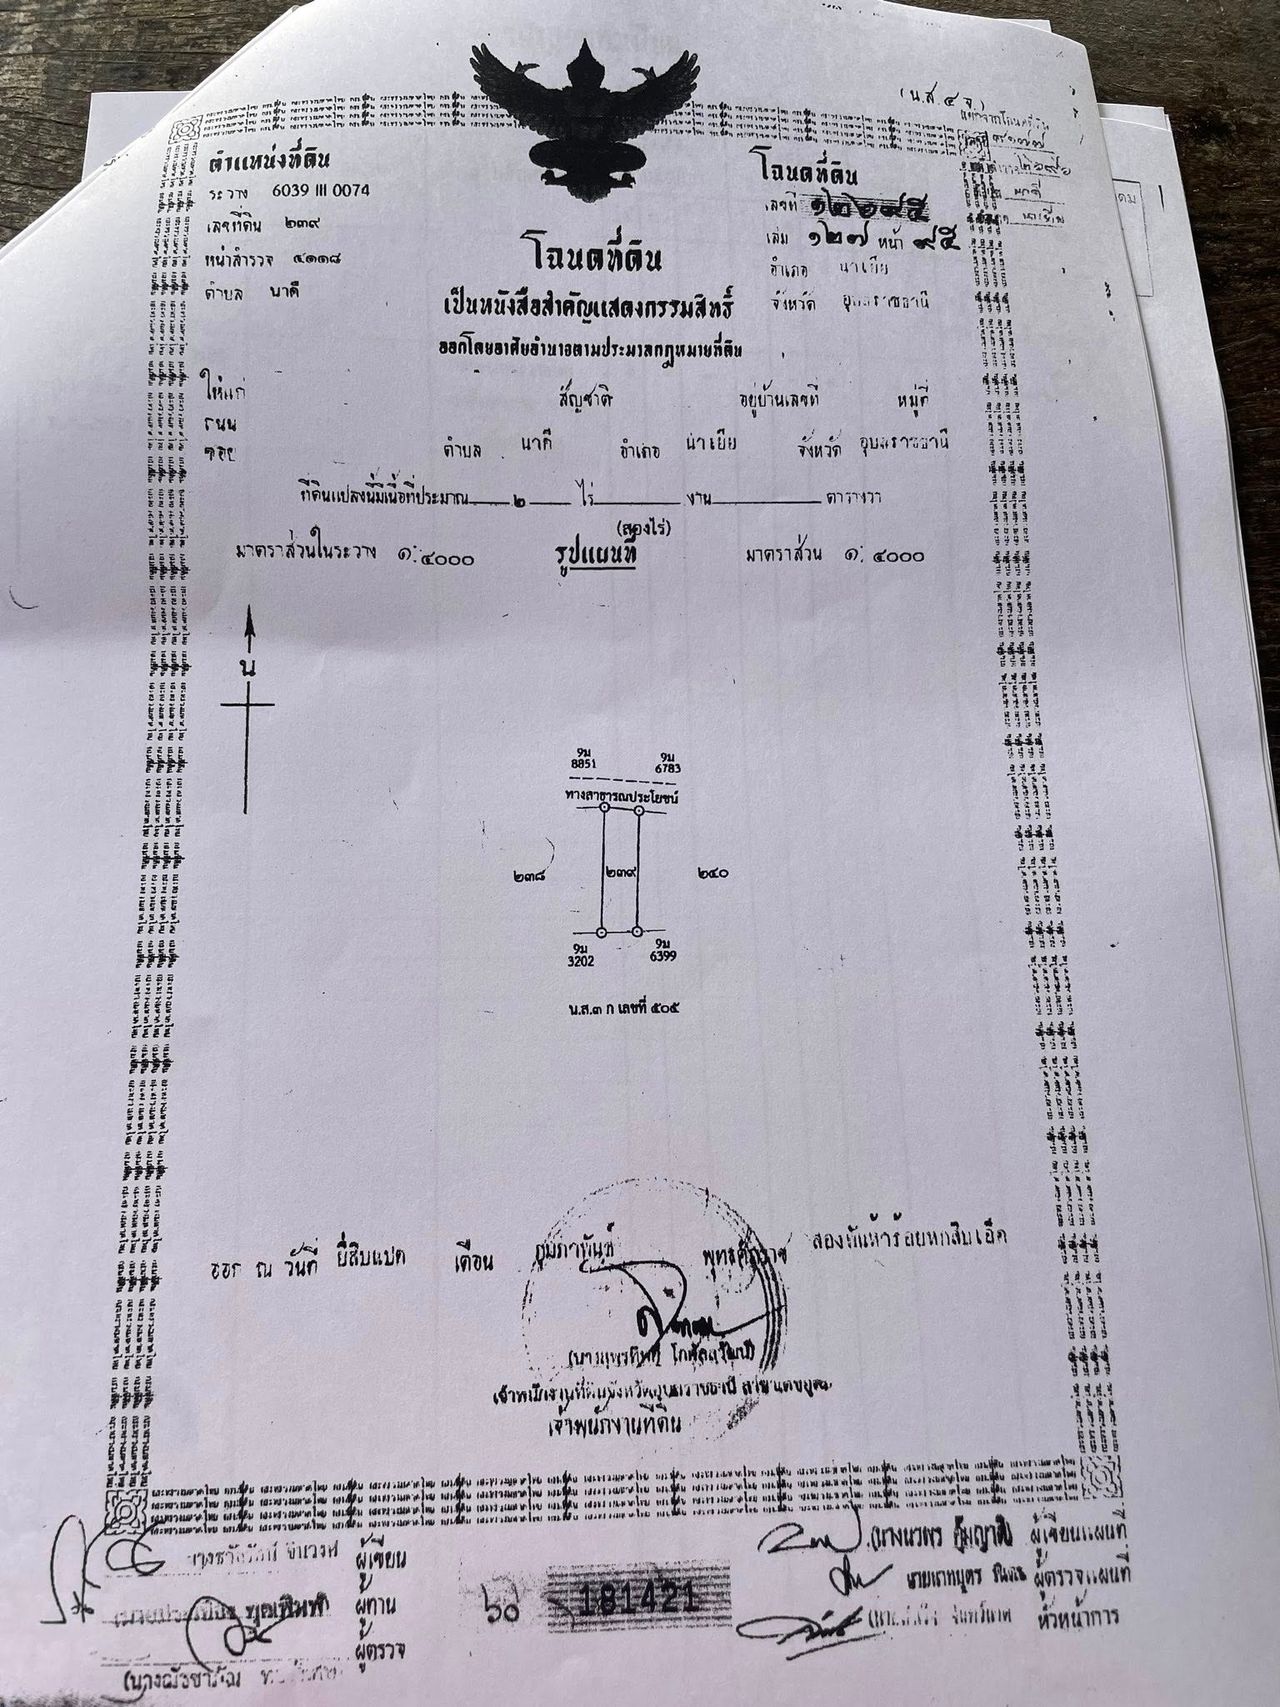 (น.ส. ๔ จ.)
ตำแหน่งที่ดิน
ระวาง 6039 III 0074
เลขที่ดิน ๒๓๙
หน้าสำรวจ ๔๑๑๘
ตำบล นาดี
โฉนดที่ดิน
เลขที่ ๑๒๖๙๕
เล่ม ๑๒๗ หน้า ๙๕
อำเภอ นาเยีย
จังหวัด อุบลราชธานี
โฉนดที่ดิน
เป็นหนังสือสำคัญแสดงกรรมสิทธิ์
ออกโดยอาศัยอำนาจตามประมวลกฎหมายที่ดิน
ให้แก่ สัญชาติ อยู่บ้านเลขที่ หมู่ที่
ถนน
ซอย ตำบล นาดี อำเภอ นาเยีย จังหวัด อุบลราชธานี
ที่ดินแปลงนี้มีเนื้อที่ประมาณ ๒ ไร่ งาน ตารางวา
(สองไร่)
มาตราส่วนในระวาง ๑:๔๐๐๐ รูปแผนที่ มาตราส่วน ๑:๔๐๐๐
น
9ม 9ม
8851 6783
ทางสาธารณประโยชน์
๒๓๘ ๒๓๙ ๒๔๐
9ม 9ม
3202 6399
น.ส.๓ ก เลขที่ ๕๐๕
ออก ณ วันที่ ยี่สิบแปด เดือน กุมภาพันธ์ พุทธศักราช สองพันห้าร้อยหกสิบเอ็ด
เจ้าพนักงานที่ดินจังหวัดอุบลราชธานี สาขาเดชอุดม
เจ้าพนักงานที่ดิน
ผู้เขียน
ผู้ทาน
ผู้ตรวจ
๖๐ 181421
ผู้เขียนแผนที่
ผู้ตรวจแผนที่
หัวหน้าการ